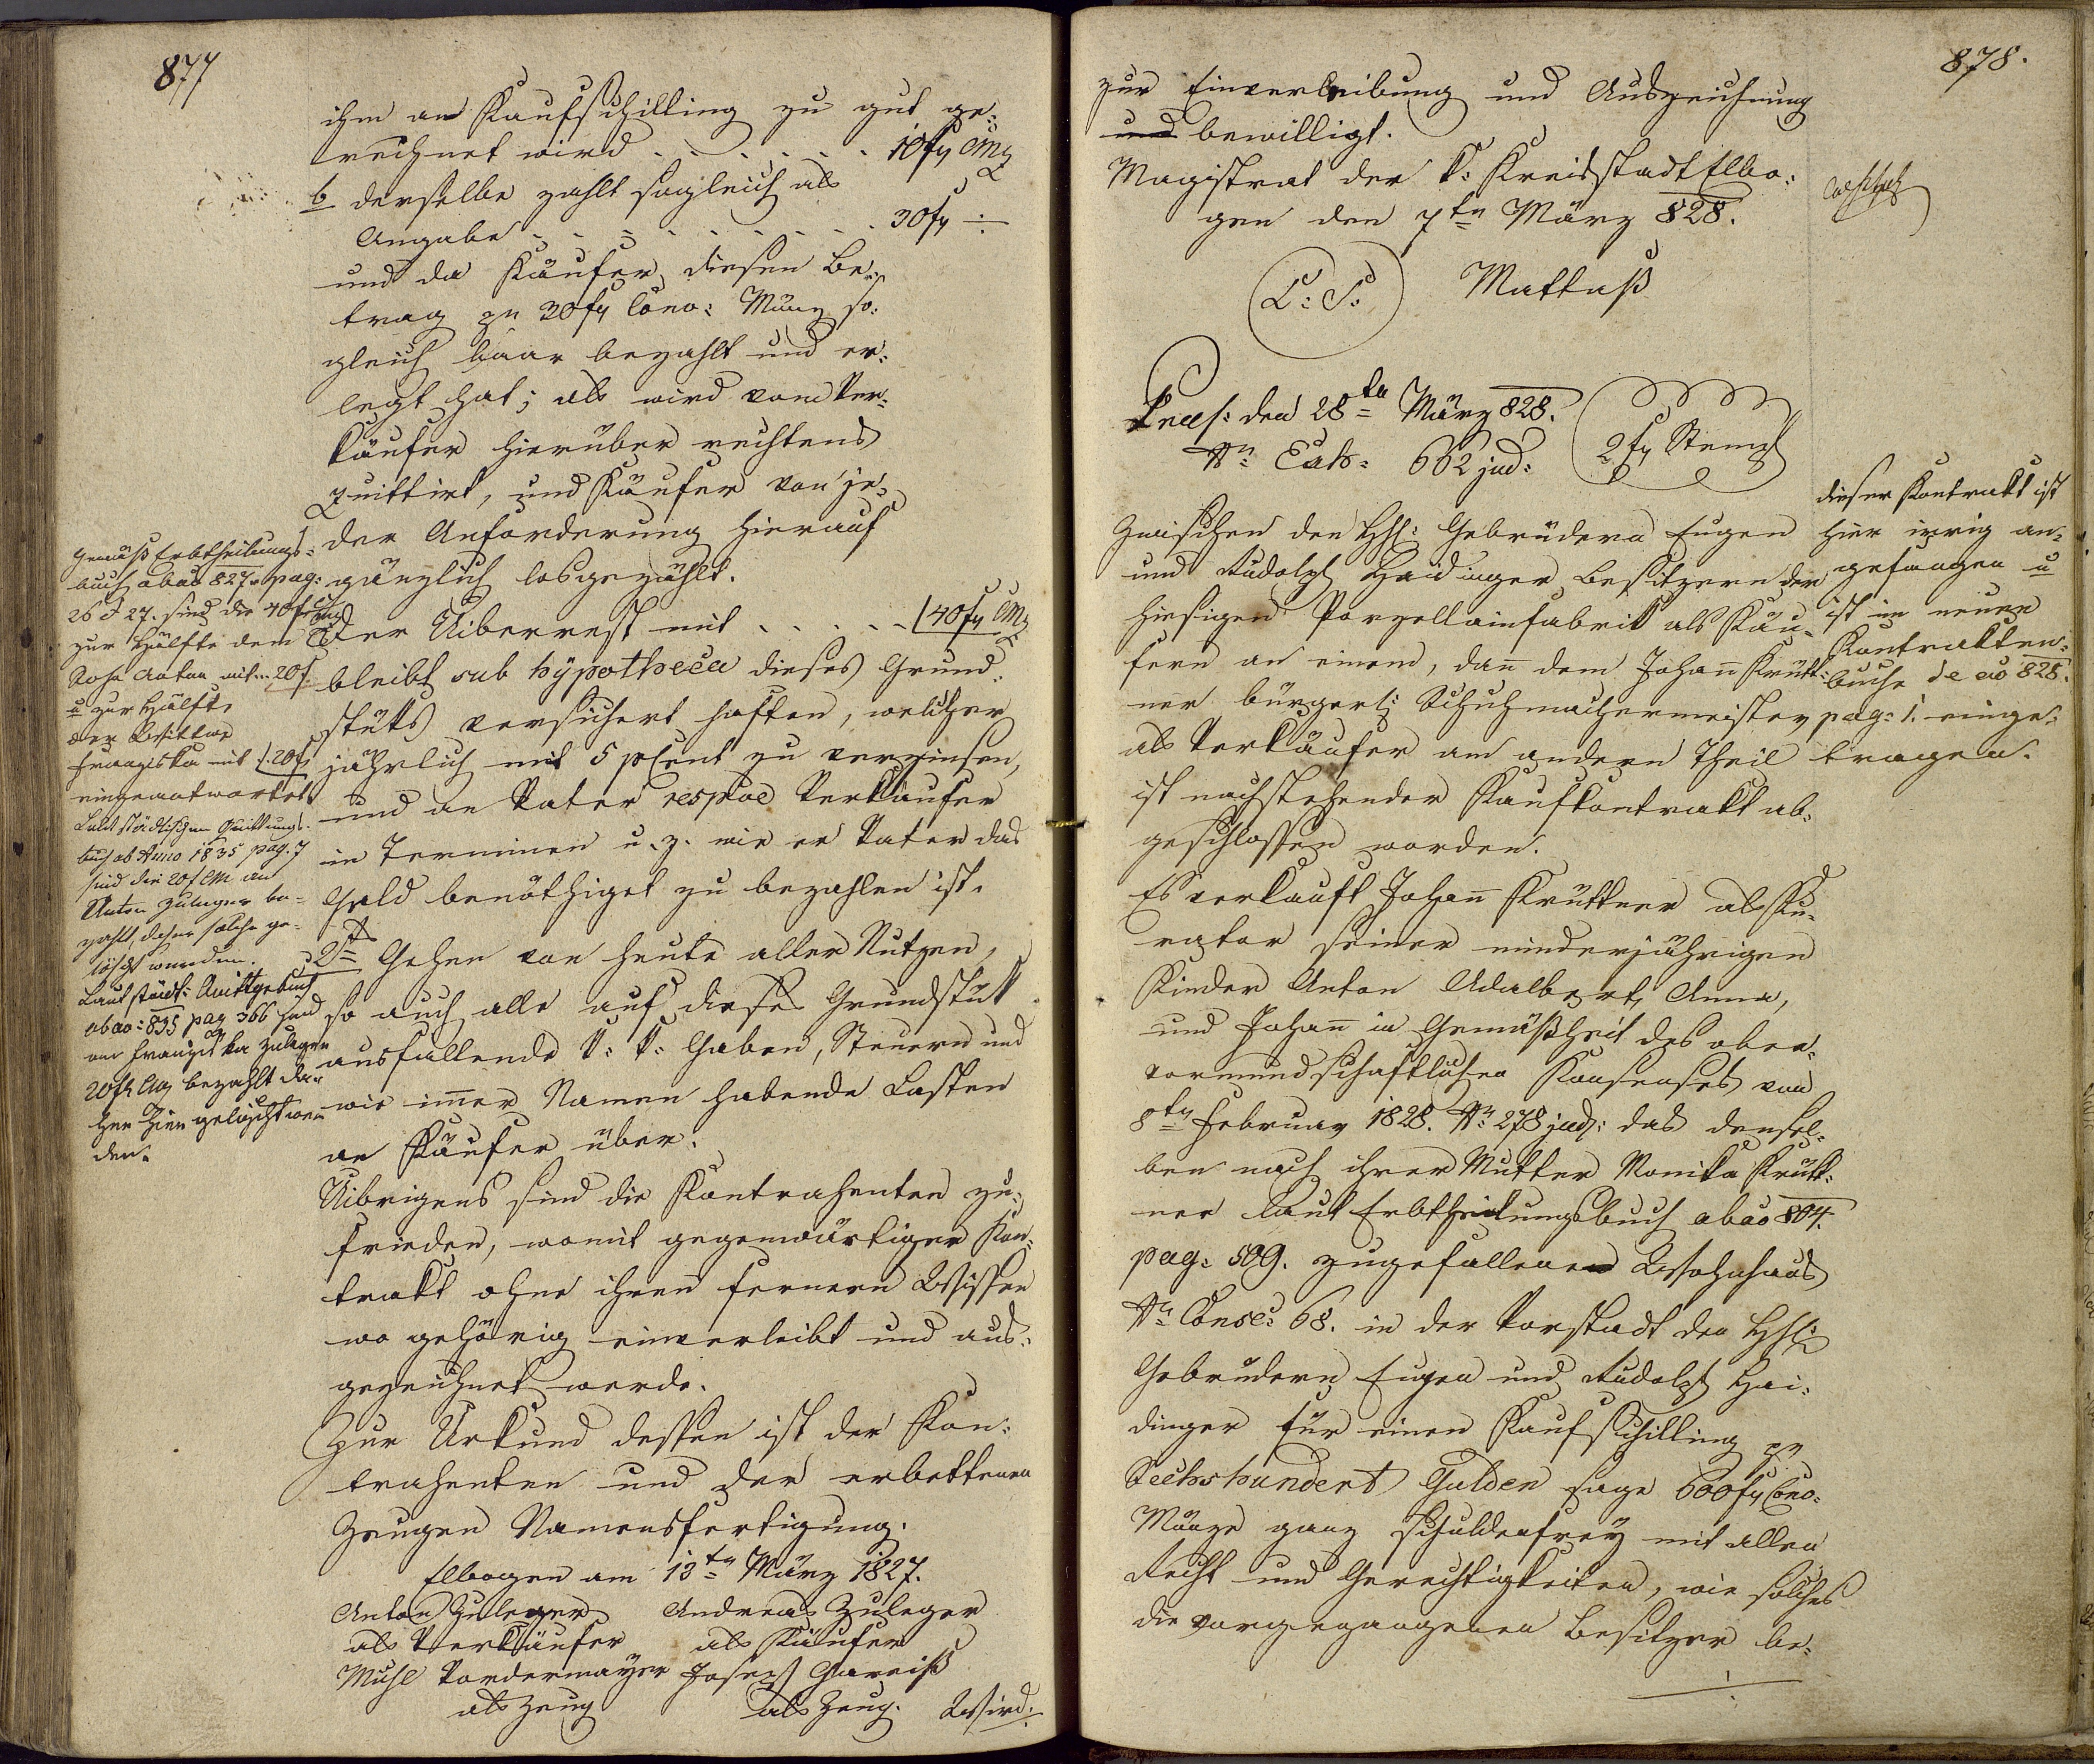 877
ihm an Kaufschilling zu gut ge:
rechnet wird . . . . . . . 10 fl CMz
b derselbe zahlt sogleich als
Angabe . . . . . . . . . 30 fl ÷
und da Käufer diesen Be:
trag zu 30 fl Conv: Münz so:
gleich baar bezahlt und er:
legt hat; als wird vom Ver:
käufer hierüber rechtens
quittirt, und Käufer von je:
der Anforderung hierauf
gänzlich losgezählt.
Der Uiberrest mit . . . . . 40 fl CMz
bleibt sub hypotheca dieses Grund:
stüks versichert haften, welcher
jährlich mit 5 pCent zu verzinsen,
und an Vater respve Verkäufer
in Terminen u. z. wie er Vater das
Geld benöthiget zu bezahlen ist.
2tens Gehen von heute aller Nutzen,
so auch alle auf dieses Grundstük
ausfallende k: k: Gaben, Steuern und
wie immer Namen habende Lasten
an Käufer über.
Uibrigens sind die Kontrahenten zu:
frieden, womit gegenwärtiger Kon:
trakt ohne ihren fernern Wissen
wo gehörig einverleibt und aus:
gezeichnet werde.
Zur Urkund dessen ist der Kon:
trahenten und der erbettenen
Zeugen Namensfertigung.
Elbogen am 13ten März 1827.
Anton Zuleger Andreas Zuleger
als Verkäufer als Käufer
Michl Vordermayer Joseph Gareiß
als Zeug als Zeug. Wird
Gemäß Erbtheilungs:
buch abao 827 pag:
26 & 27. sind die 40 fl CMz
zur Hälfte dem
Sohn Anton mit .. 20 f
u zur Hälfte
der Wittwe
Franziska mit 20 f
eingeantwortet
Laut städtischen Quittungs:
buch ab Anno 1835 pag. 7
sind die 20 f CM an
Anton Zuleger be:
zahlt, daher solche ge:
löscht wurden.
Laut städt: Quittgebuch
abao: 835 pag 366 sind
an Franziska Zuleger
20 fl CMz bezahlt da:
her hier gelöscht wor:
den.
878.
zur Einverleibung und Auszeichnung
und bewilligt.
Magistrat der k: Kreisstadt Elbo:
gen den 7ten März 828.
L: S: Mattuß
Praes: den 28ten März 828.
Nr Exh: 662 jud: 2 fl Stempl
Zwischen den HH: Gebrüdern Eugen
und Rudolph Haidinger Besitzern der
hiesigen Porzellainfabrik als Käu:
fern an einem, dann dem Johann Krütt:
ner bürgerl: Schuhmachermeister
als Verkäufer am andern Theil
ist nachstehender Kaufkontrakt ab:
geschlossen worden.
Es verkauft Johann Krüttner als Ku:
rator seiner minderjährigen
Kinder Anton Adalbert, Anna,
und Johann in Gemäßheit des ober:
vormundschaftlichen Konsenses vom
8ten Februar 1828. Nr 278 jud: das densel:
ben nach ihrer Mutter Monika Krütt:
ner laut Erbtheilungsbuch abao 804.
pag: 509. zugefallenen Wohnhaus
Nr Consc: 68. in der Vorstadt den HH:
Gebrüdern Eugen und Rudolph Hai:
dinger für einen Kaufschilling pr
Sechshundert Gulden sage 600 fl Conv:
Münze ganz schuldenfrey mit allen
Recht und Gerechtigkeiten, wie solches
die vorgegangenen Besitzer be:
dieser Kontrakt ist
hier irrig an:
gefangen u
ist im neuen
Kontrakten:
buche de ao 828.
pag: 1. einge:
tragen.